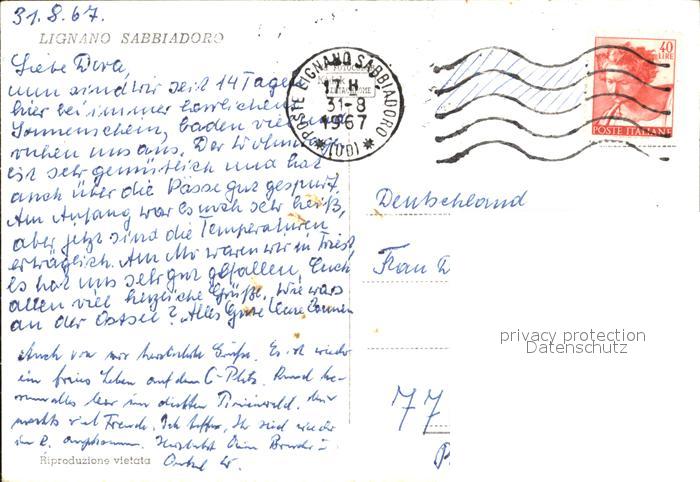 31.8.67.
LIGNANO SABBIADORO
Liebe Dora,
nun sind wir seit 14 Tagen
hier bei immer herrlichem
Sonnenschein, baden viel und
ruhen uns aus. Der Wohnwagen
ist sehr gemütlich und hat
auch über die Pässe gut gespurt.
Am Anfang war es noch sehr heiß,
aber jetzt sind die Temperaturen
erträglich. Am Mi waren wir in Triest,
es hat uns sehr gut gefallen. Euch
allen viel herzliche Grüße. Wie war's
an der Ostsee? Alles Gute Eure
Auch von mir herzlichste Grüße. Es ist wieder
ein freies Leben auf dem C-Platz. Rund he-
rum alles leer im dichten Pinienwald.
macht viel Freude. Ich hoffe, Ihr seid wieder
in angekommen. Herzlichst Dein Bruder u.
Riproduzione vietata Onkel W.
POSTE LIGNANO SABBIADORO
17 H
31-8
1967
(UD)
40
LIRE
POSTE ITALIANE
Deutschland
Frau D
privacy protection
Datenschutz
77